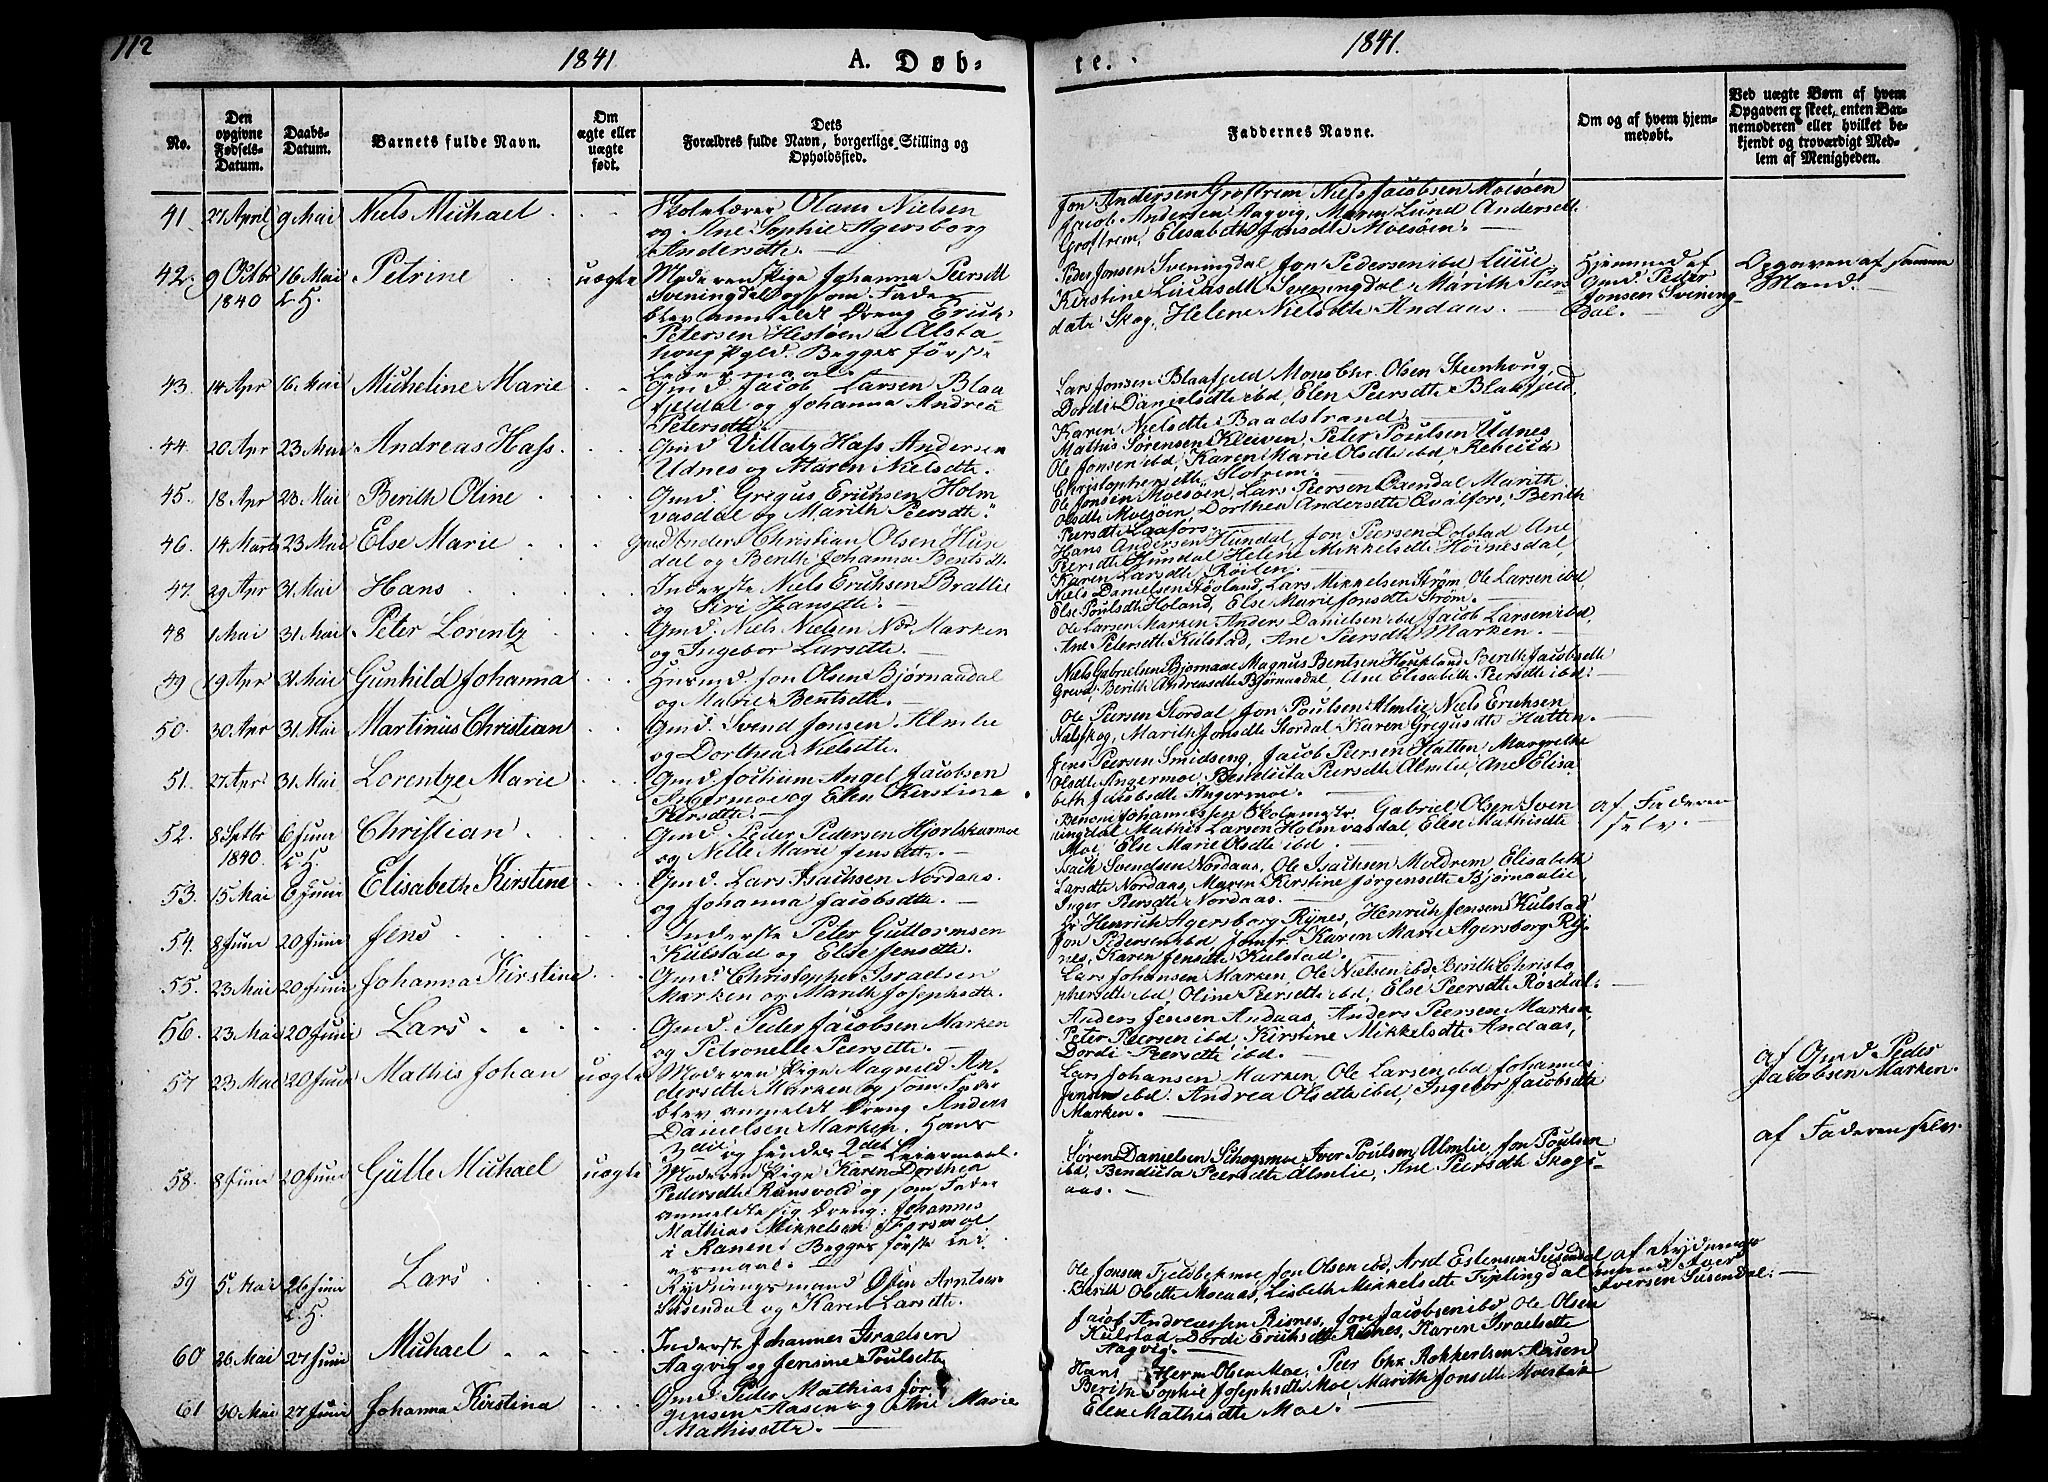 112
1841
A. Døb-
te.
1841.
No.
Den
opgivne
Fødsels-
Datum.
Daabs-
Datum.
Barnets fulde Navn.
Om
ægte eller
uægte
født.
Dets
Forældres fulde Navn, borgerlige Stilling og
Opholdssted.
Faddernes Navne.
Om og af hvem hjem-
medøbt.
Ved uægte Børn af hvem
Opgaven er skeet, enten Bar-
nemoderen eller hvilket be-
kjendt og troværdigt Med-
lem af Menigheden.
41. 27 April 9 Mai Niels Michael
Skolelærer Olaus Nielsen
og Ane Sophie Agersborg
Andersdtr.
Jon Andersen Groftrem Niels Jacobsen Moesøen
Jacob Andersen Aagvig, Maren Lund Andersdtr.
Groftrem, Elisabeth Jonsdtr Moesøen.
42. 9 Octbr 1840 16 Mai Petrine uægte
Moderen Pige Johanna Peersdtr
Sveningdal og som Fader
blev anmeldt Dreng Erich
Petersen Hestøen i Alsta
houg Pgld. Begges første
Leiermaal.
Peder Jonsen Sveningdal Jon Pedersen ibd Lucie
Kirstine Lucasdtr Sveningdal Marith Peers
datr Skog, Helene Nielsdtr Andaas.
Hjemmedøbt
Gmd. Peder
Jonsen Svening-
dal.
Opgaven af samme
Mand.
43. 14 Apr 16 Mai Micheline Marie
Gmd Jacob Larsen Blaa
fjeldal og Johanna Andrea
Petersdtr.
Lars Jonsen Blaafjeld Mons Chr. Olsen Steenhoug,
Dordi Danielsdtr ibd, Elen Peersdtr Blaafjeld,
Karen Nielsdtr Baadstrand.
44. 20 Apr 23 Mai Andreas Hass.
Gmd Villaty Hass Andersen
Udnes og Maren Nielsdtr.
Mathis Sørensen Kleiven, Peter Poulsen Udnes
Ole Jonsen ibd, Karen Marie Olsdtr ibd, Rebecca
Christophersdtr Slotrem.
45. 18 Apr 23 Mai Berith Oline
Gmd. Gregus Erichsen Holm
vasdal og Marith Peersdtr.
Ole Jonsen Moesøen, Lars Peersen Marith
Olsdtr Moesøen Dorthea Andersdtr Qvalfors, Berith
Peersdtr Laafors.
46. 14 Marts 23 Mai Else Marie
Gmd Anders Christian Olsen Hun
dal og Berith Johanna Bentsdtr.
Hans Andersen Hundal, Jon Peersen Dolstad Ane
Peersdtr Hundal Helene Mikkelsdtr Høinesdal,
Karen Larsdtr Røilen.
47. 29 Apr 31 Mai Hans
Inderste Niels Erichsen Brattlie
og Siri Hansdtr.
Niels Danielsen Høgland, Lars Mikkelsen Strøm, Ole Larsen ibd,
Else Poulsdtr Holand, Else Marie Jonsdtr Strøm.
48 1 Mai 31 Mai Peter Lorentz
Gmd. Niels Nielsen Ndr Marken
og Ingebor Larsdtr.
Ole Larsen Marken Anders Danielsen ibd, Jacob Larsen ibd
Ane Petersdtr Kulstad, Ane Peersdtr Marken.
49 19 Apr 31 Mai Gunhild Johanna
Husmd. Jon Olsen Bjørnaadal
og Marie Bentsdtr.
Niels Gabrielsen Bjørnaae Magnus Bentsen Houkland Berith Jacobsdtr
Berith Andreasdtr Bjørnaadal, Ane Elisabeth Peersdtr ibd.
50. 30 Apr 31 Mai Martinus Christian
Gmd. Svend Jonsen Almlie
og Dorthea Nielsdtr.
Ole Peersen Stordal Jon Poulsen Almlie Niels Erichsen
Marith Jonsdtr Stordal Karen Gregusdtr Hatten.
51. 27 Apr 31 Mai Lorentze Marie
Gmd Jochum Angel Jacobsen
Angermoe og Elen Kirstine
Peersdtr.
Jens Peersen Smidseng, Jacob Peersen Hatten, Margrethe
Olsdtr Angermoe Benedicta Peersdtr Almlie, Ane Elisa
beth Jacobsdtr Angermoe.
52. 8 Septbr 1840. 6 Juni Christian
Gmd. Peder Pedersen Hjortskarmoe
og Nelle Marie Jensdtr.
Benoni Johannessen Skolemstr. Gabriel Olsen Sven
ningdal Mathis Larsen Holmvasdal, Elen Mathisdtr
Moe, Else Marie Olsdtr ibd.
af Faderen
selv.
53. 15 Mai 6 Juni Elisabeth Kirstine
Gmd. Lars Isachsen Nordaas.
og Johanna Jacobsdtr.
Isach Svendsen Nordaas, Ole Isachsen Moldrem Elisabeth
Larsdtr Nordaas, Maren Kirstine Jørgensdtr Bjørnaalie,
Inger Peersdtr Nordaas.
54. 8 Juni 20 Juni Jens
Inderste Peter Guttormsen
Kulstad og Else Jensdtr.
Hr Henrich Agersborg Rynes, Henrich Jensen Kulstad
Jon Pedersen ibd, Jomfr. Karen Marie Agersborg Ry-
nes, Karen Jensdtr Kulstad.
55. 23 Mai 20 Juni Johanna Kirstine
Gmd. Christopher Israelsen
Marken og Marith Josephsdtr.
Lars Johansen Marken, Ole Nielsen ibd Berith Christo
phersdtr ibd, Oline Peersdtr ibd, Else Peersdtr Røsdal.
56. 23 Mai 20 Juni Lars
Gmd. Peder Jacobsen Marken
og Petronelle Peersdtr.
Anders Jensen Andaas, Anders Peersen Marken,
Peter Peersen ibd, Kirstine Mikkelsdtr Andaas,
Dordi Peersdtr ibd.
57 23 Mai 20 Juni Mathis Johan uægte
Moderen Pige Magnild An-
dersdtr Marken og som Fader
blev anmeldt Dreng Anders
Danielsen Marken. Hans
3die og hendes 2det Leiermaal.
Lars Johansen Marken, Ole Larsen ibd Johannes
Jensen ibd. Andrea Olsdtr ibd, Ingebor Jacobsdtr
Marken.
af Gmd Peder
Jacobsen Marken.
58. 8 Juni 20 Juni Gulle Michael uægte
Moderen Pige Karen Dorthea
Pedersdtr Ransvold og som Fader
anmeldte sig Dreng: Johannes
Mathias Mikkelsen Forsmoe
i Ranen. Begges første Lei
ermaal.
Søren Danielsen Skogsmoe Iver Poulsen Almlie, Jon Poulsen
ibd, Bendicta Peersdtr Almlie, Ane Peersdtr Skogs-
aas.
af Faderen selv.
59 5 Mai 26 Juni Lars
Rydningsmand Østen Arntsen
Susendal og Karen Larsdtr.
Ole Jonsen Fjeldbekmoe Jon Olsen ibd, Arnt Estensen Susendal
Berith Olsdtr Moeaas, Lisbeth Mikkelsdtr Fiplingdal
af Rydnings
mand Iver
Iversen Susendal.
60 26 Mai 27 Juni Michael
Inderst Johannes Israelsen
Aagvig og Jensine Poulsdtr
Jacob Andreassen Risnes, Jon Jacobsen ibd Ole Olsen
Kulstad Dordi Erichsdtr Risnes, Karen Israelsdtr
Aagvig.
61 30 Mai 27 Juni Johanna Kirstina
Gmd. Peder Mathias Jør
gensen Aasen og Ane Marie
Mathisdtr.
Hans Herm Olsen Moe, Peer Chr. Rokkertsen Aasen
Berith Sophie Josephsdtr Moe, Marith Jonsdtr
Elen Mathisdtr Moe.